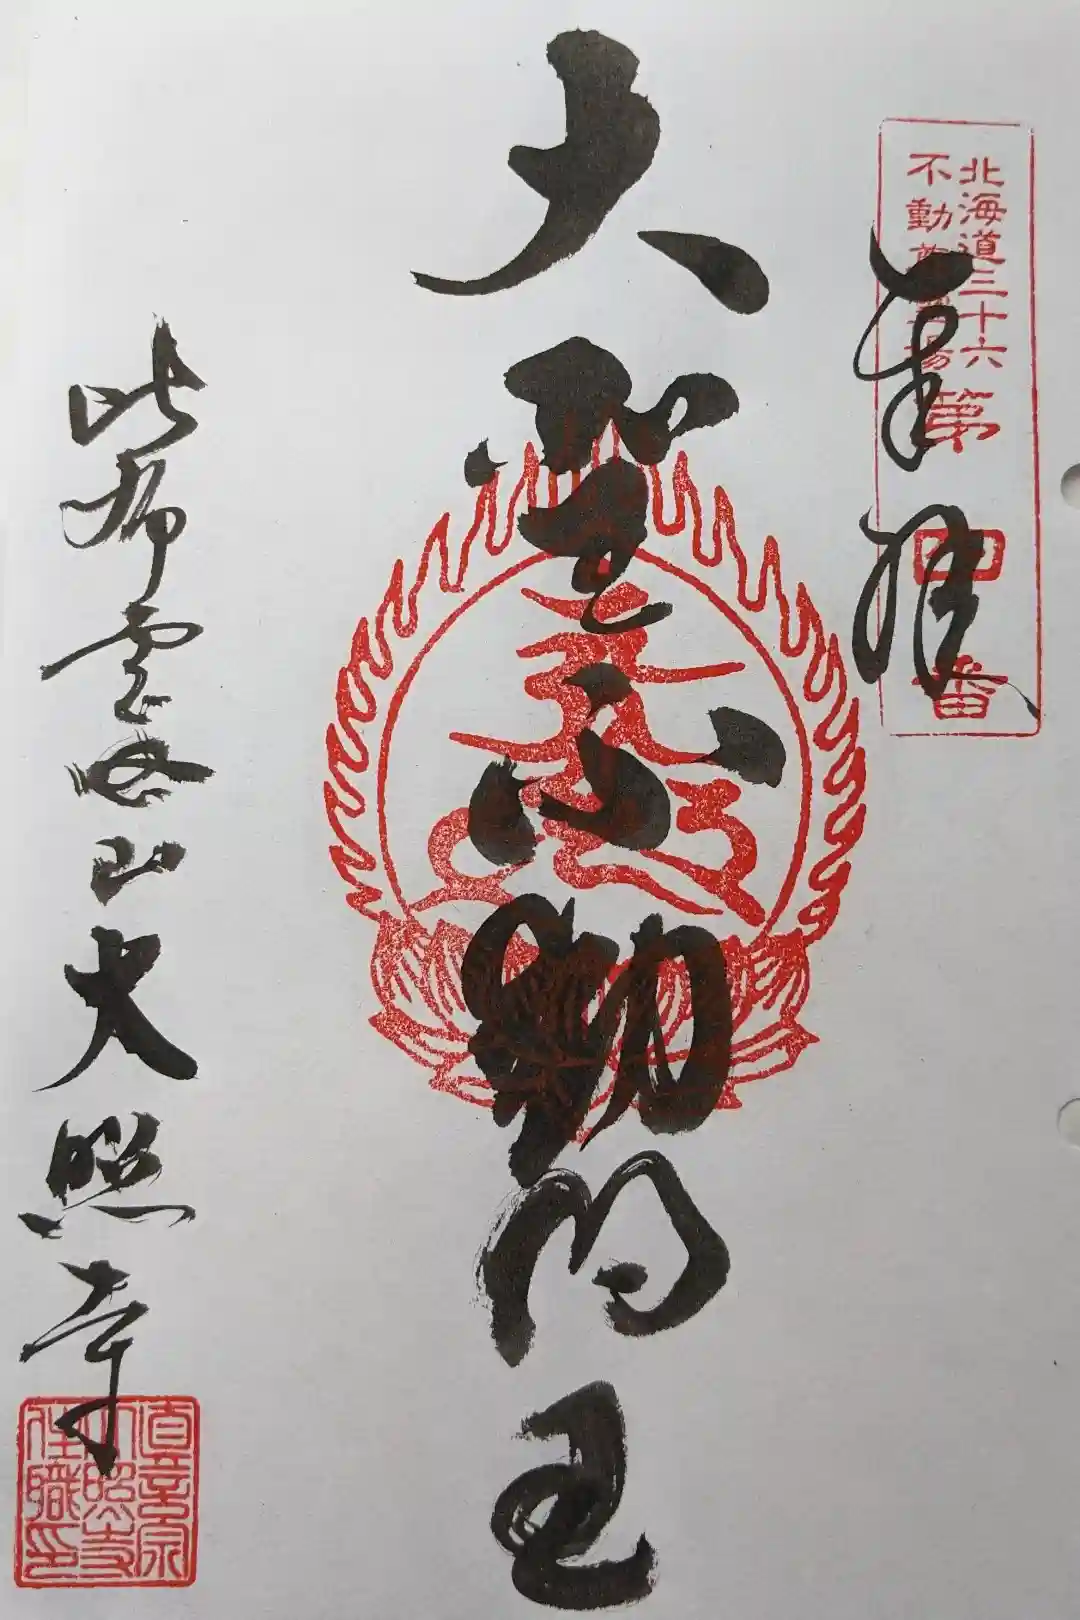 北海道三十六
不動尊霊場
第四番
奉拝
大聖不動明王
比布雲母山大照寺
真言宗
大照寺
住職印